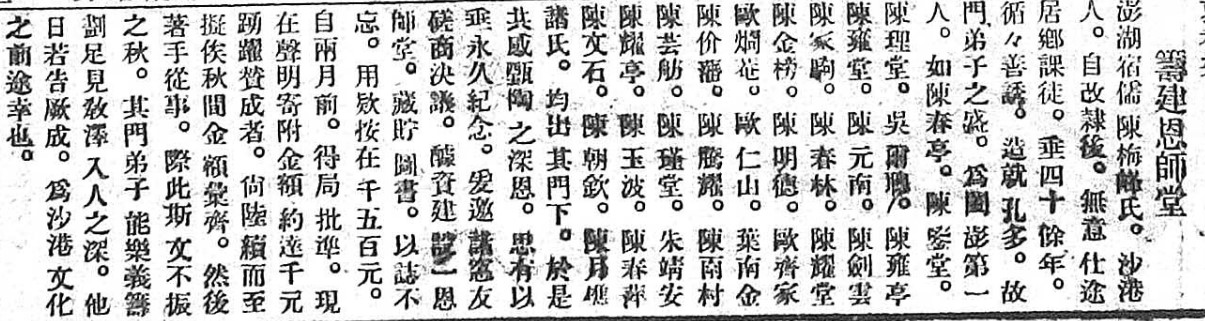 籌建恩師堂
澎湖宿儒陳梅峰氏。沙港
人。自改隸後。無意仕途
居鄉課徒。垂四十餘年。
循々善誘。造就孔多。故
門弟子之盛。為闔澎第一
人。如陳春亭。陳鑒堂。
陳理堂。吳爾聰。陳雍亭
陳雍堂。陳元南。陳劍雲
陳家駒。陳春林。陳耀堂
陳金榜。陳明德。歐齊家
歐烱菴。歐仁山。葉南金
陳价藩。陳騰耀。陳南村
陳芸舫。陳瑾堂。朱靖安
陳耀亭。陳玉波。陳春萍
陳文石。陳朝欽。陳月樵
諸氏。均出其門下。於是
共感甄陶之深恩。思有以
垂永久紀念。爰邀諸窓友
磋商決議。醵資建設一恩
師堂。藏貯圖書。以誌不
忘。用欵按在千五百元。
自兩月前。得局批準。現
在聲明寄附金額約達千元
踴躍贊成者。尙陸續而至
擬俟秋間金額彙齊。然後
著手從事。際此斯文不振
之秋。其門弟子能樂義籌
劃足見敎澤入人之深。他
日若告厥成。為沙港文化
之前途幸也。